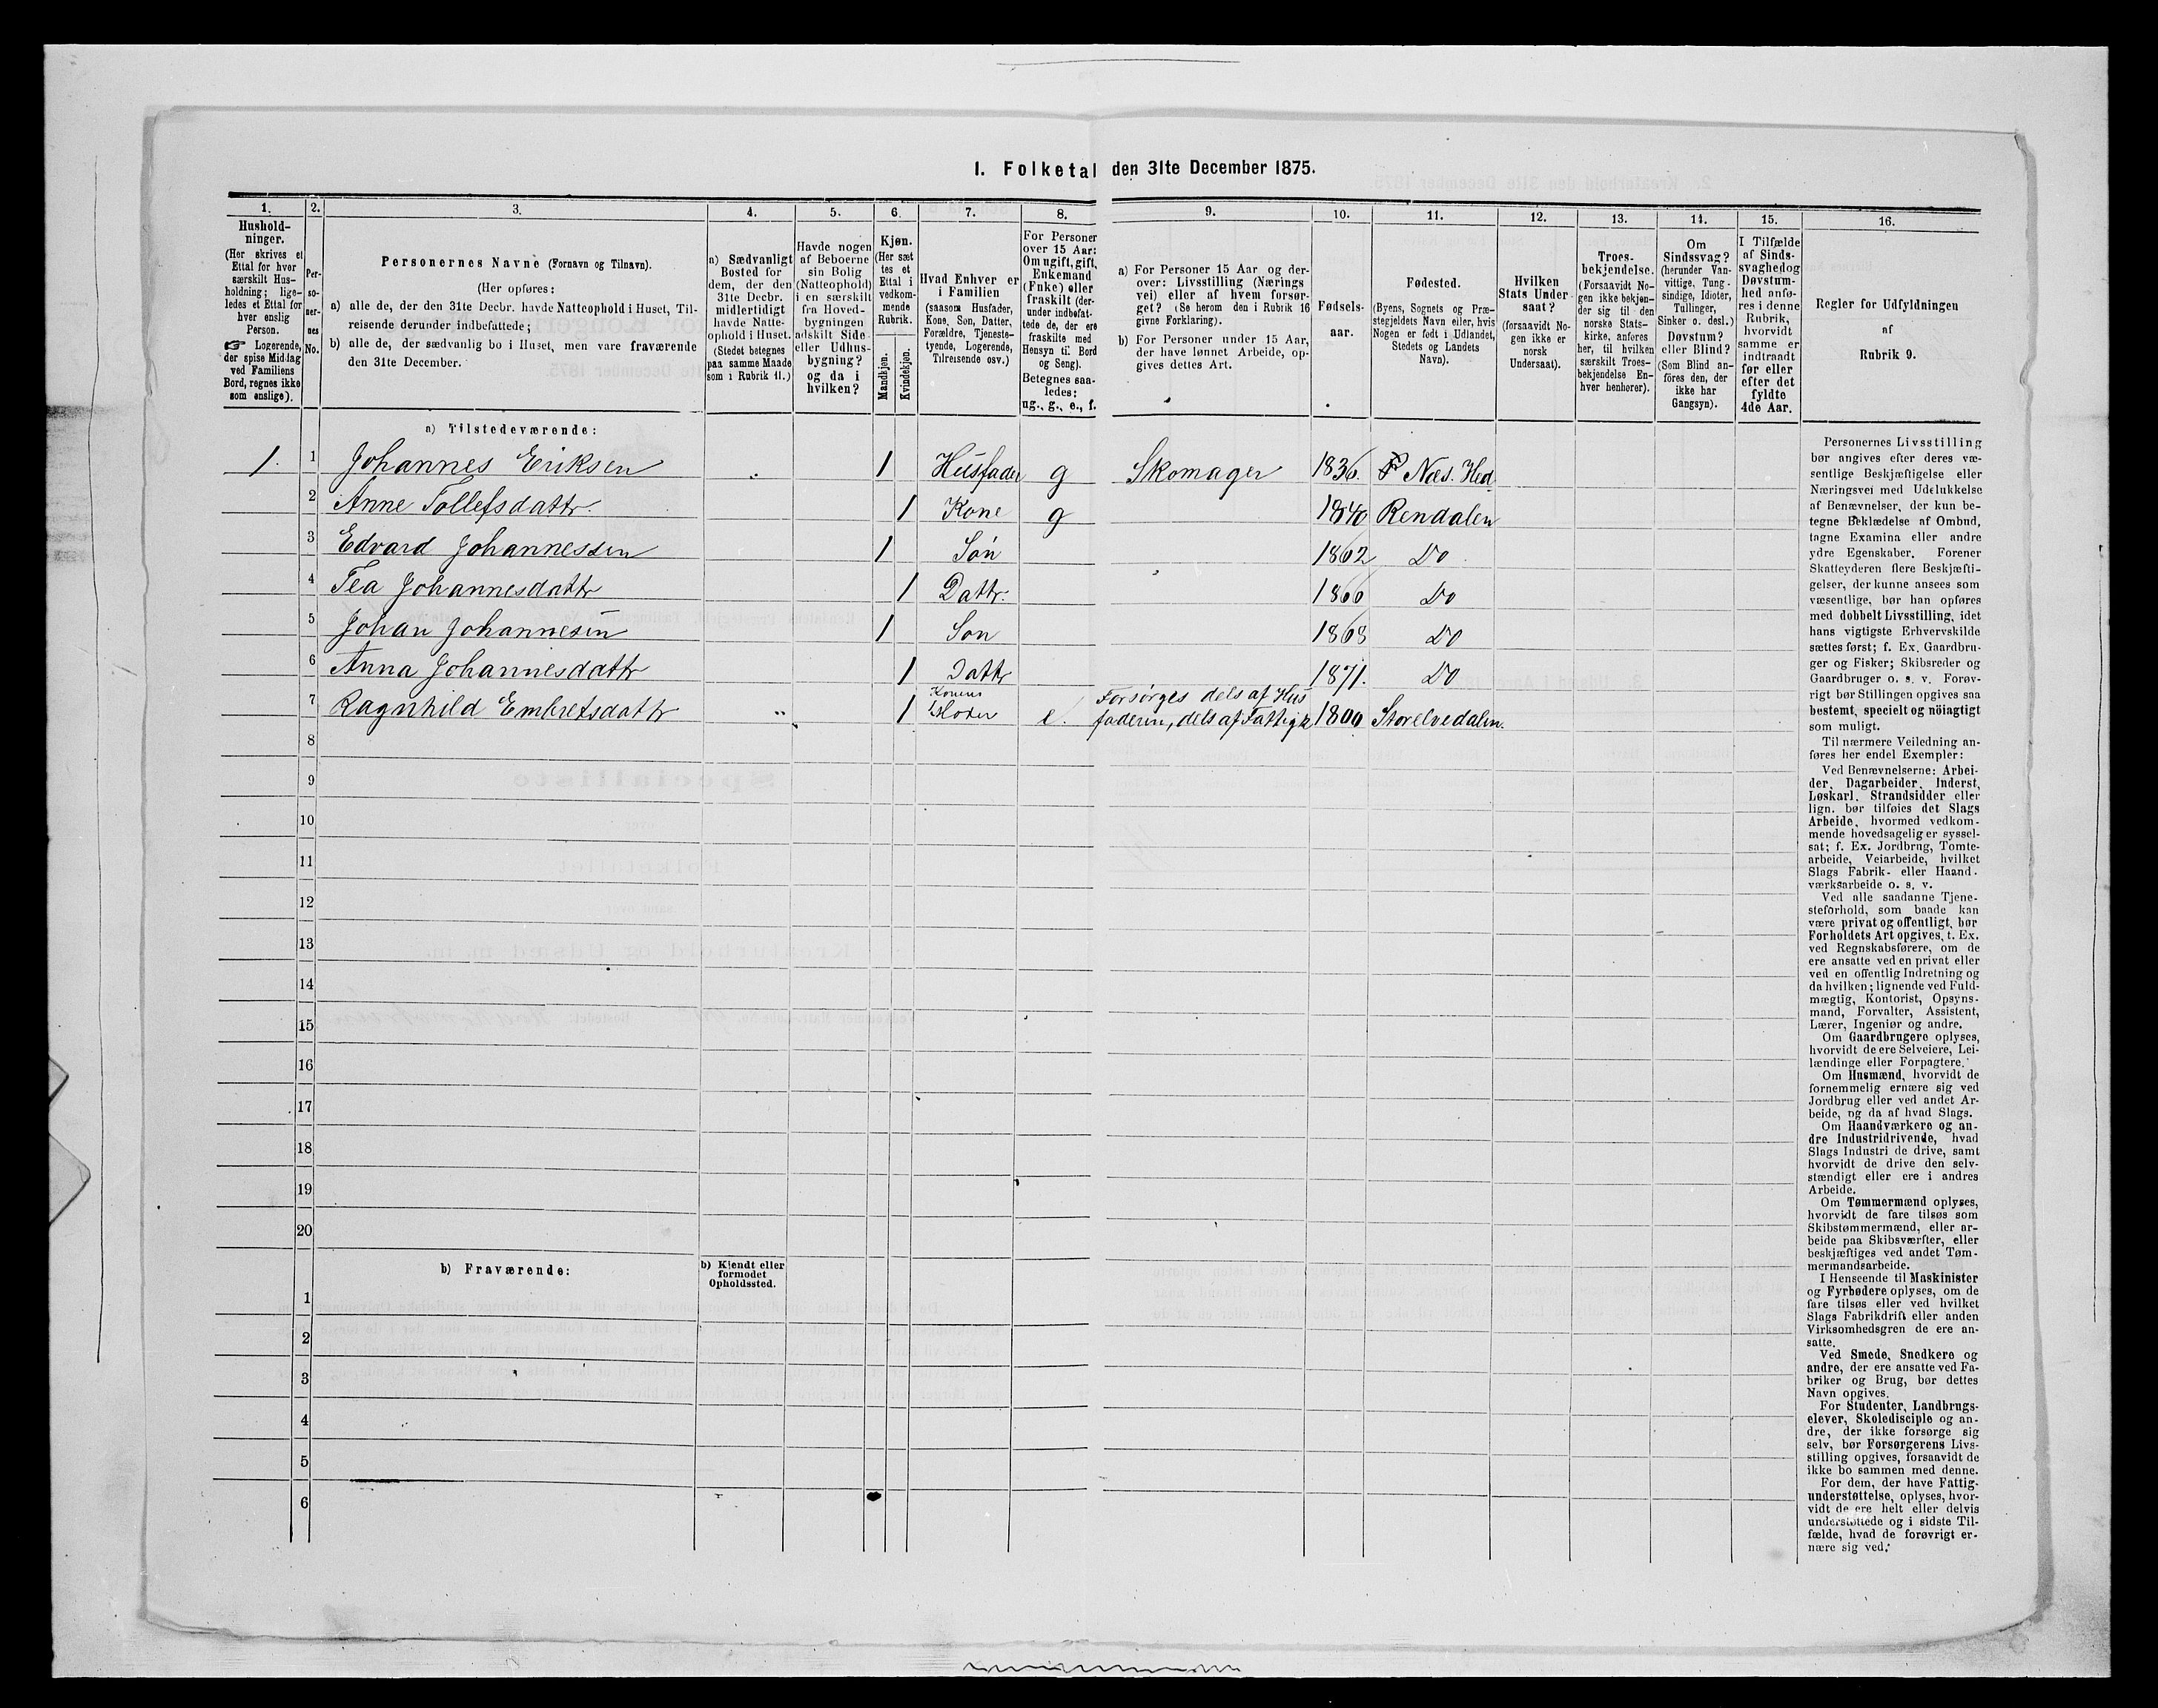 I. Folketal den 31te December 1875.
1. 2. 3. 4. 5. 6. 7. 8. 9. 10. 11. 12. 13. 14. 15. 16.
Hushold-
ninger.
(Her skrives et
Ettal for hver
særskilt Hus-
holdning; lige-
ledes et Ettal for
hver enslig
Person.
☞ Logerende,
der spise Middag
ved Familiens
Bord, regnes ikke
som enslige).
Per-
so-
ner-
nes
No.
Personernes Navne (Fornavn og Tilnavn).
(Her opføres:
a) alle de, der den 31te Decbr. havde Natteophold i Huset, Til-
reisende derunder indbefattede;
b) alle de, der sædvanlig bo i Huset, men vare fraværende
den 31te December.
a) Sædvanligt
Bosted for
dem, der den
31te Decbr.
midlertidigt
havde Natte-
ophold i Huset.
(Stedet betegnes
paa samme Maade
som i Rubrik 11.)
Havde nogen
af Beboerne
sin Bolig
(Natteophold)
i en særskilt
fra Hoved-
bygningen
adskilt Side
eller Udhus-
bygning?
og da i
hvilken?
Kjøn.
(Her sæt
tes et
Ettal i
vedkom-
mende
Rubrik.
Mandkjøn.
Kvindekjøn.
Hvad Enhver er
i Familien
(saasom Husfader,
Kone, Søn, Datter,
Forældre, Tjeneste-
tyende, Logerende,
Tilreisende osv.)
For Personer
over 15 Aar:
Om ugift, gift,
Enkemand
(Enke) eller
fraskilt (der-
under indbefat-
tede de, der ere
fraskilte med
Hensyn til Bord
og Seng).
Betegnes saa-
ledes:
ug., g., e., f.
a) For Personer 15 Aar og der-
over: Livsstilling (Nærings
vei) eller af hvem forsør-
get? (Se herom den i Rubrik 16
givne Forklaring).
b) For Personer under 15 Aar,
der have lønnet Arbeide, op-
gives dettes Art.
Fødsels-
aar.
Fødested.
(Byens, Sognets og Præ-
stegjeldets Navn eller, hvis
Nogen er født i Udlandet,
Stedets og Landets
Navn).
Hvilken
Stats Under-
saat?
(forsaavidt No-
gen ikke er
norsk
Undersaat).
Troes-
bekjendelse.
(Forsaavidt No-
gen ikke bekjen-
der sig til den
norske Stats-
kirke, anføres
her, til hvilken
særskilt Troes-
bekjendelse En-
hver henhører).
Om
Sindssvag?
(herunder Van-
vittige, Tung-
sindige, Idioter,
Tullinger,
Sinker o. desl.)
Døvstum?
eller Blind?
(Som Blind an-
föres den, der
ikke har
Gangsyn).
I Tilfælde
af Sinds-
svaghed og
Døvstum-
hed anfø-
res i denne
Rubrik,
hvorvidt
samme er
indtraadt
før eller
efter det
fyldte
4de Aar.
Regler for Udfyldningen
af
Rubrik 9.
a) Tilstedeværende:
1. 1 Johannes Eriksen 1 Husfader g Skomager 1836. Næs. Hed.
2 Anne Tollefsdattr. 1 Kone g 1840 Rendalen
3 Edvard Johannessen 1 Søn 1862 Do
4 Tea Johannesdattr 1 Dattr. 1866 Do
5 Johan Johannesen 1 Søn 1868 Do
6 Anna Johannesdattr 1 Dattr 1871. Do
7 Ragnhild Embretsdattr " 1 Konens Moder e. Forsørges dels af Hus
faderen, dels af Fattigk 1800 Storelvedalen.
8
9
10
11
12
13
14
15
16
17
18
19
20
b) Fraværende:
b) Kjendt eller
formodet
Opholdssted.
1
2
3
4
5
6
Personernes Livsstilling
bør angives efter deres væ-
sentlige Beskjæftigelse eller
Næringsvei med Udelukkelse
af Benævnelser, der kun be-
tegne Beklædelse af Ombud,
tagne Examina eller andre
ydre Egenskaber. Forener
Skatteyderen flere Beskjæfti-
gelser, der kunne ansees som
væsentlige, bør han opføres
med dobbelt Livsstilling, idet
hans vigtigste Erhvervskilde
sættes først; f. Ex. Gaardbru-
ger og Fisker; Skibsreder og
Gaardbruger o. s. v. Forøv-
rigt bør Stillingen opgives saa
bestemt, specielt og nöiagtigt
som muligt.
Til nærmere Veiledning an-
føres her endel Exempler:
Ved Benævnelserne: Arbei-
der, Dagarbeider, Inderst,
Løskarl, Strandsidder eller
lign. bør tilføies det Slags
Arbeide, hvormed vedkom-
mende hovedsagelig er syssel-
sat; f. Ex. Jordbrug, Tomte-
arbeide, Veiarbeide, hvilket
Slags Fabrik- eller Haand-
værksarbeide o. s. v.
Ved alle saadanne Tjene-
steforhold, som baade kan
være privat og offentligt, bør
Forholdets Art opgives, t. Ex.
ved Regnskabsførere, om de
ere ansatte ved en privat eller
ved en offentlig Indretning og
da hvilken; lignende ved Fuld-
mægtig, Kontorist, Opsyns-
mand, Forvalter, Assistent,
Lærer, Ingeniør og andre.
Om Gaardbrugere oplyses,
hvorvidt de ere Selveiere, Lei-
lændinge eller Forpagtere.
Om Husmænd, hvorvidt de
fornemmelig ernære sig ved
Jordbrug eller ved andet Ar-
beide, og da af hvad Slags.
Om Haandværkere og an-
dre Industridrivende, hvad
Slags Industri de drive, samt
hvorvidt de drive den selv-
stændigt eller ere i andres
Arbeide.
Om Tømmermænd oplyses,
hvorvidt de fare tilsøs som
Skibstømmermænd, eller ar-
beide paa Skibsværfter, eller
beskjæftiges ved andet Tøm-
mermandsarbeide.
I Henseende til Maskinister
og Fyrbødere oplyses, om de
fare tilsøs eller ved hvilket
Slags Fabrikdrift eller anden
Virksomhedsgren de ere an-
satte.
Ved Smede, Snedkere og
andre, der ere ansatte ved Fa-
briker og Brug, bør dettes
Navn opgives.
For Studenter, Landbrugs-
elever, Skoledisciple og an-
dre, der ikke forsørge sig
selv, bør Forsørgerens Livs-
stilling opgives, forsaavidt de
ikke bo sammen med denne.
For dem, der have Fattig-
understøttelse, oplyses, hvor-
vidt de ere helt eller delvis
understøttede og i sidste Til-
fælde, hvad de forøvrigt er-
nære sig ved.